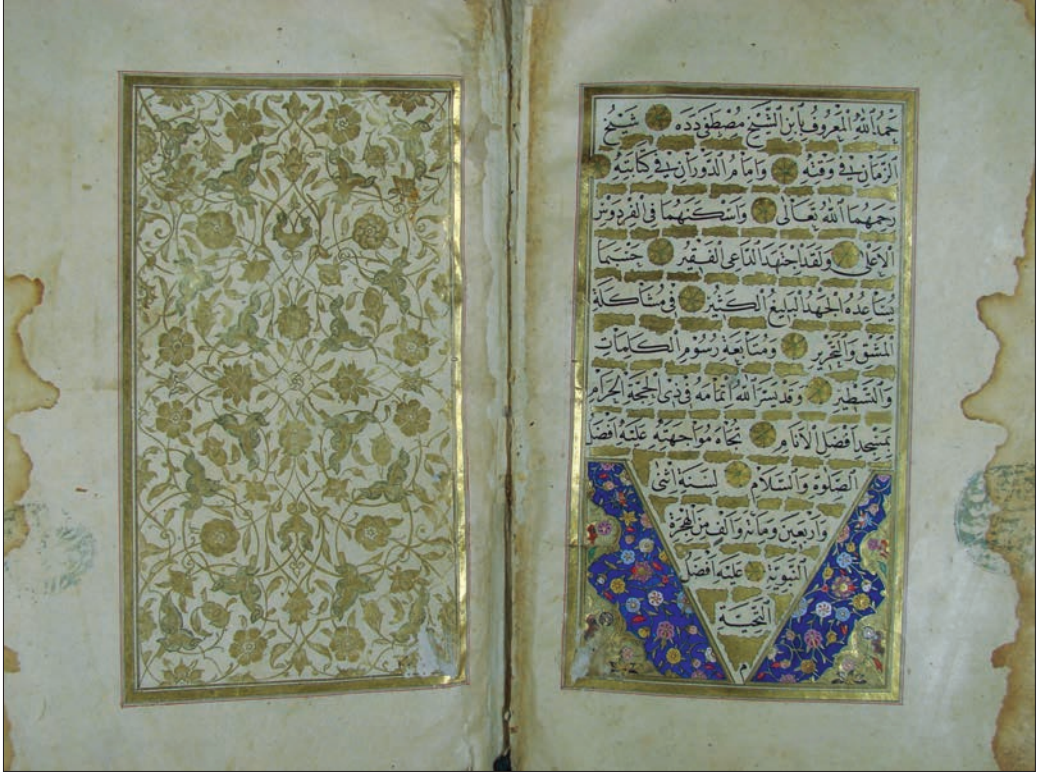 حمد الله المعروف بابن الشيخ مصطفى دده شيخ
الزمان في وقته وامام الدوران في كتابته
رحمهما الله تعالى واسكنهما في الفردوس
الاعلى ولقد اجتهد الداعي الفقير حيثما
يساعده الجهد البليغ الكثير في مشاكلة
المشق والتحرير ومتابعة رسوم الكلمات
والتسطير وقد يسر الله اتمامه في ذي الحجة الحرام
بمسجد افضل الانام تجاه مواجهته عليه افضل
الصلوة والسلام لسنة اثنى
واربعين ومائة والف من الهجرة
النبوية عليه افضل
التحية
م